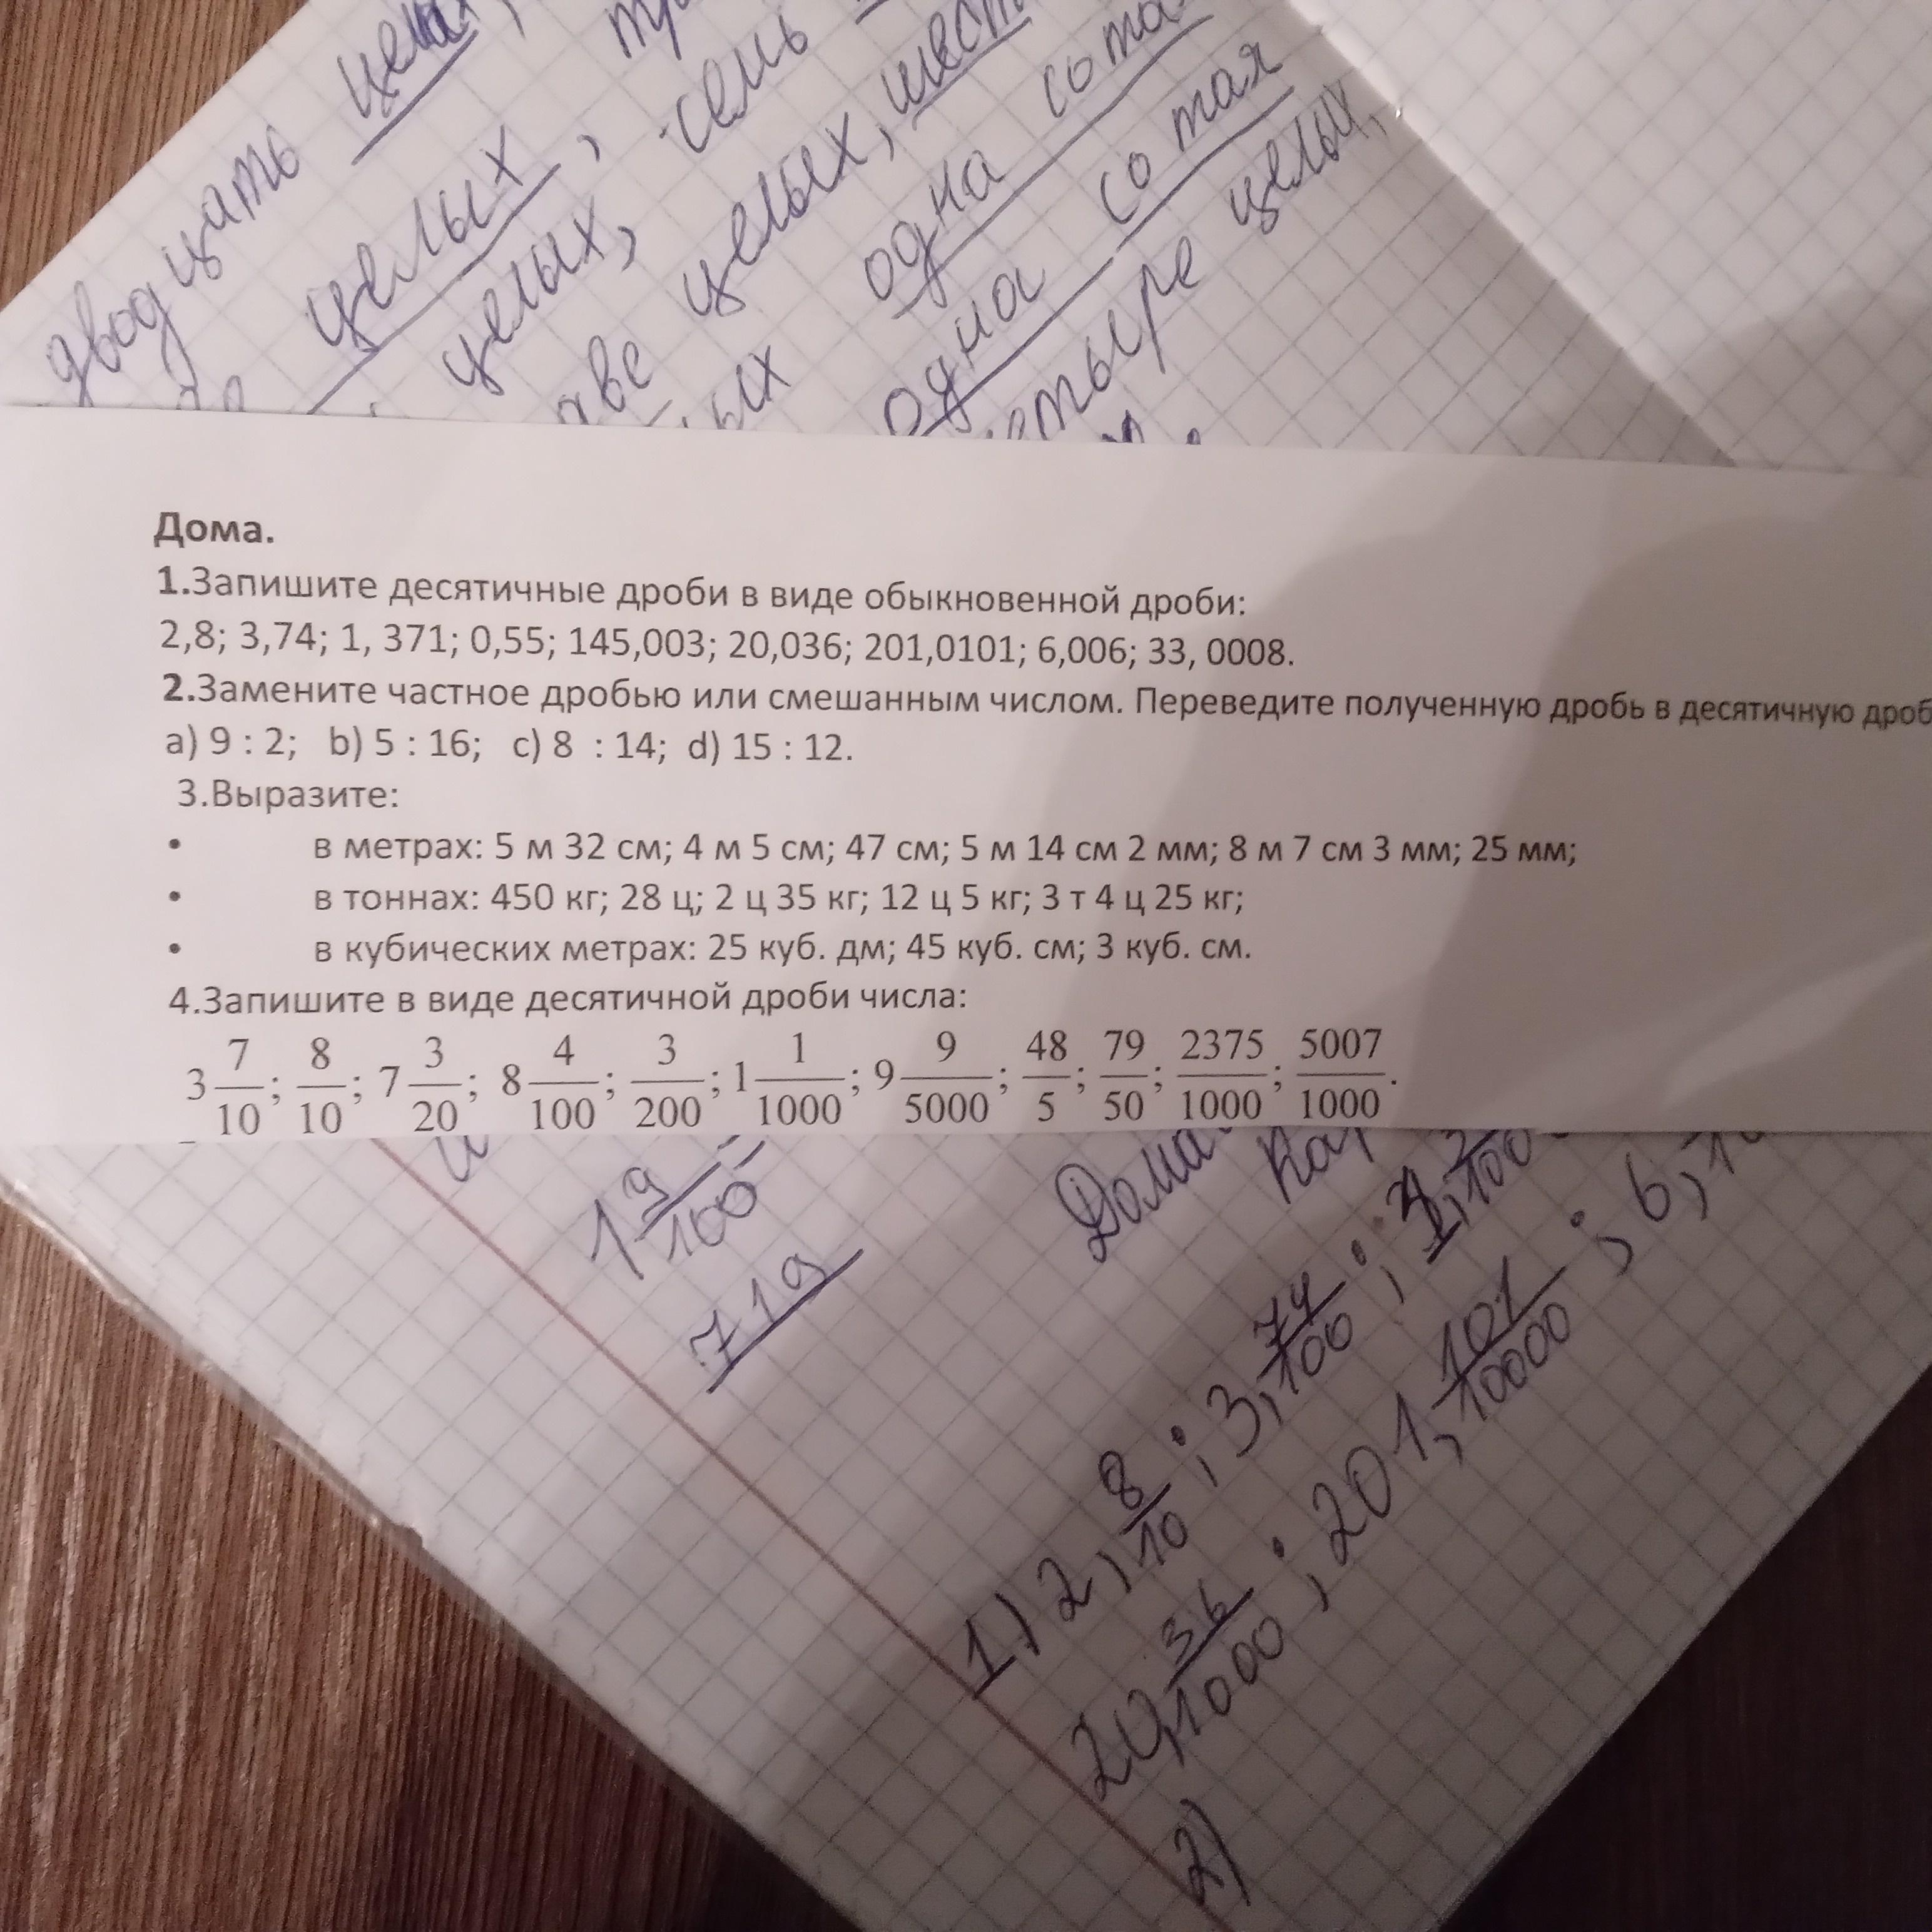 двадцать целых,
целых, семь
целых,
две целых, шесть
ых одна сотая
одна сотая
четыре целых,
Дома.
1.Запишите десятичные дроби в виде обыкновенной дроби:
2,8; 3,74; 1, 371; 0,55; 145,003; 20,036; 201,0101; 6,006; 33, 0008.
2.Замените частное дробью или смешанным числом. Переведите полученную дробь в десятичную дроб
a) 9 : 2; b) 5 : 16; c) 8 : 14; d) 15 : 12.
3.Выразите:
• в метрах: 5 м 32 см; 4 м 5 см; 47 см; 5 м 14 см 2 мм; 8 м 7 см 3 мм; 25 мм;
• в тоннах: 450 кг; 28 ц; 2 ц 35 кг; 12 ц 5 кг; 3 т 4 ц 25 кг;
• в кубических метрах: 25 куб. дм; 45 куб. см; 3 куб. см.
4.Запишите в виде десятичной дроби числа:
3 7/10; 8/10; 7 3/20; 8 4/100; 3/200; 1 1/1000; 9 9/5000; 48/5; 79/50; 2375/1000; 5007/1000.
1 9/100
719
Дома
1) 2, 8/10; 3, 74/100;
20, 36/1000; 201, 101/10000; 6,
2)